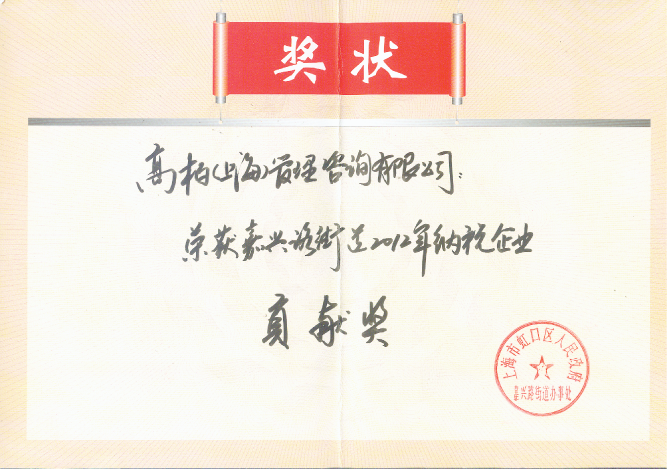 奖状
高柏(上海)管理咨询有限公司:
荣获嘉兴路街道2012年纳税企业
贡献奖
上海市虹口区人民政府
嘉兴路街道办事处